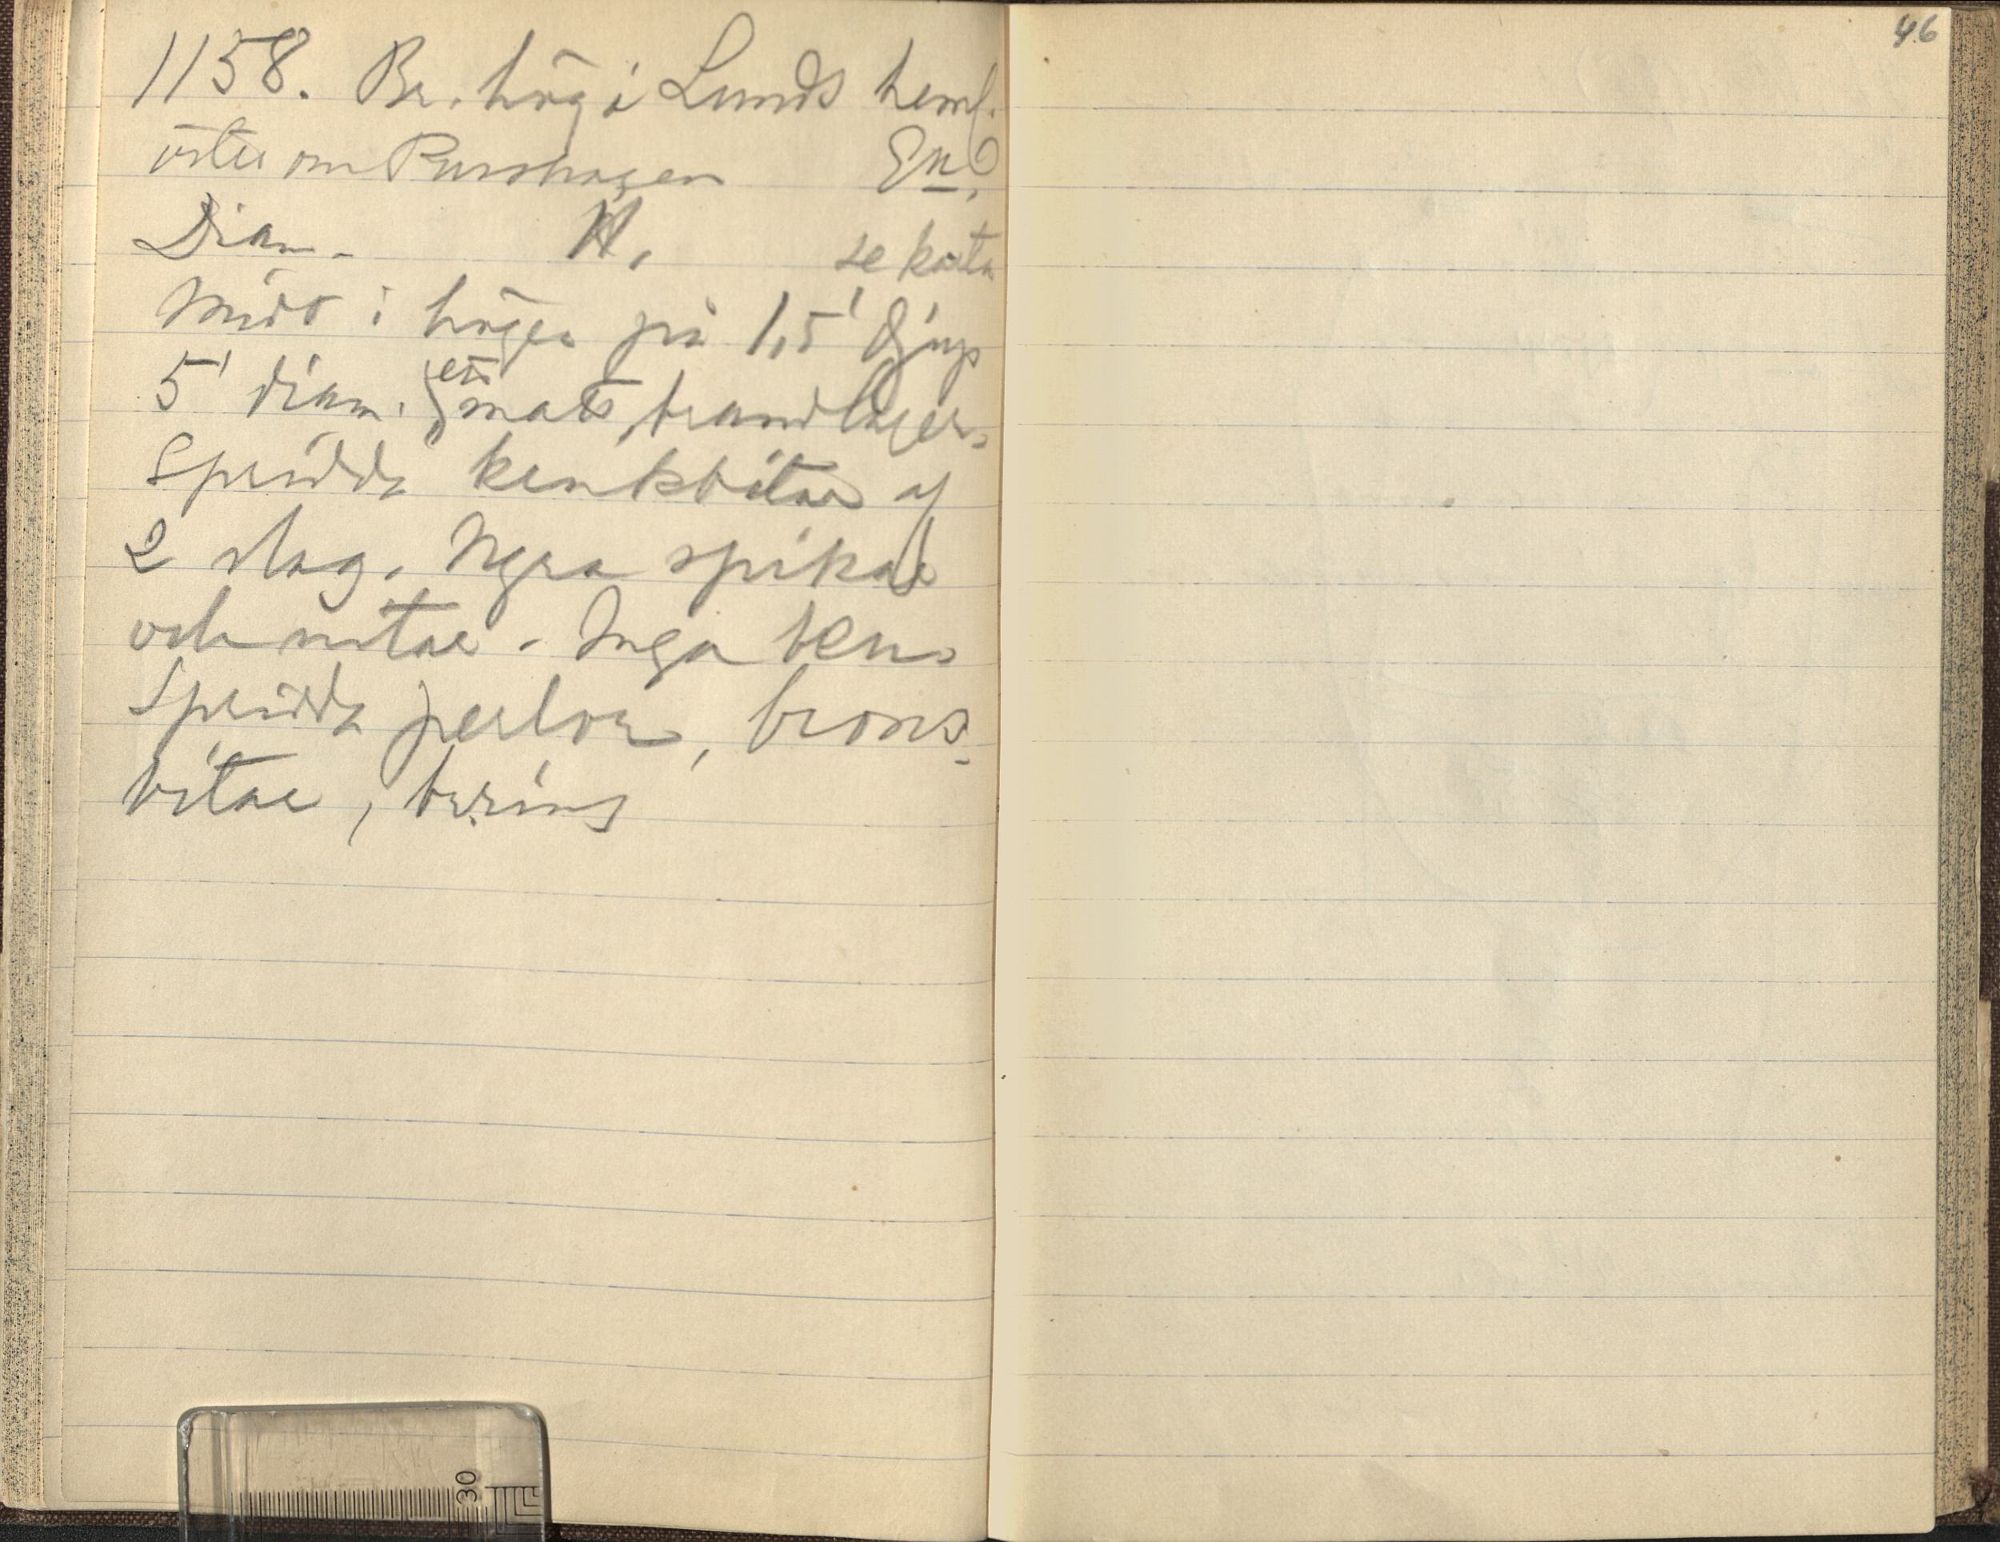 1158. Br. hög i Lunds heml.
öster om Purshagen En?
Diam. H. se karta
Midt i högen på 1,5' djup
5' diam. ett matt brandlager.
Spridda kerukbitar af
2 slag. Ngra spikar
och nitar. Inga ben.
Spridda perlor, brons-
bitar, br.ring
46
30